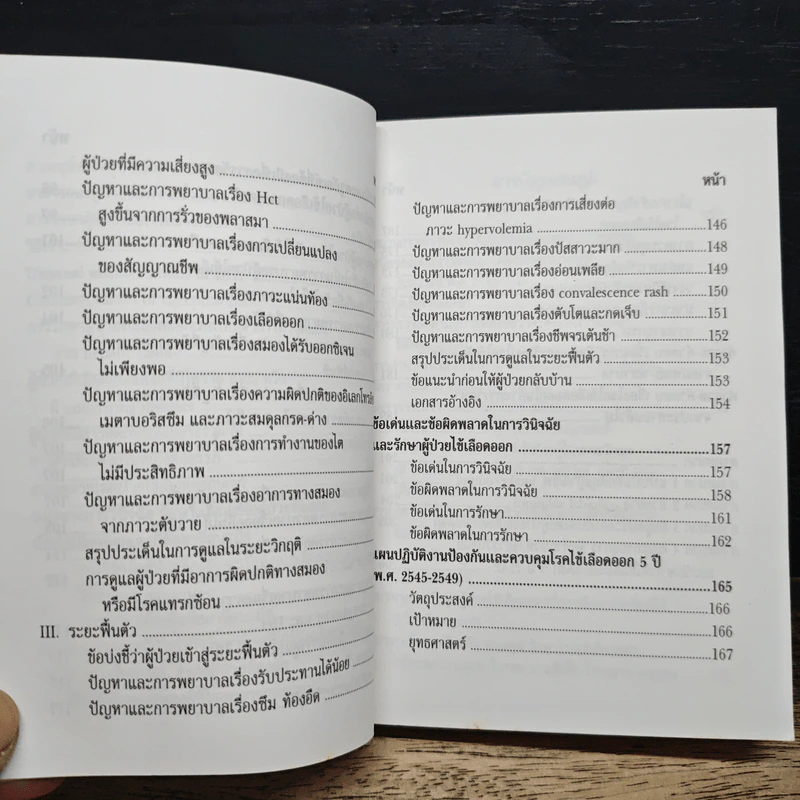 ผู้ป่วยที่มีความเสี่ยงสูง
ปัญหาและการพยาบาลเรื่อง Hct
สูงขึ้นจากการรั่วของพลาสมา
ปัญหาและการพยาบาลเรื่องการเปลี่ยนแปลง
ของสัญญาณชีพ
ปัญหาและการพยาบาลเรื่องภาวะแน่นท้อง
ปัญหาและการพยาบาลเรื่องเลือดออก
ปัญหาและการพยาบาลเรื่องสมองได้รับออกซิเจน
ไม่เพียงพอ
ปัญหาและการพยาบาลเรื่องความผิดปกติของอิเลกโทรลัยต์
เมตาบอริสซึม และภาวะสมดุลกรด-ด่าง
ปัญหาและการพยาบาลเรื่องการทำงานของไต
ไม่มีประสิทธิภาพ
ปัญหาและการพยาบาลเรื่องอาการทางสมอง
จากภาวะตับวาย
สรุปประเด็นในการดูแลในระยะวิกฤติ
การดูแลผู้ป่วยที่มีอาการผิดปกติทางสมอง
หรือมีโรคแทรกซ้อน
III. ระยะฟื้นตัว
ข้อบ่งชี้ว่าผู้ป่วยเข้าสู่ระยะฟื้นตัว
ปัญหาและการพยาบาลเรื่องรับประทานได้น้อย
ปัญหาและการพยาบาลเรื่องซึม ท้องอืด
หน้า
ปัญหาและการพยาบาลเรื่องการเสี่ยงต่อ
ภาวะ hypervolemia 146
ปัญหาและการพยาบาลเรื่องปัสสาวะมาก 148
ปัญหาและการพยาบาลเรื่องอ่อนเพลีย 149
ปัญหาและการพยาบาลเรื่อง convalescence rash 150
ปัญหาและการพยาบาลเรื่องตับโตและกดเจ็บ 151
ปัญหาและการพยาบาลเรื่องชีพจรเต้นช้า 152
สรุปประเด็นในการดูแลในระยะฟื้นตัว 153
ข้อแนะนำก่อนให้ผู้ป่วยกลับบ้าน 153
เอกสารอ้างอิง 154
ข้อเด่นและข้อผิดพลาดในการวินิจฉัย
และรักษาผู้ป่วยไข้เลือดออก 157
ข้อเด่นในการวินิจฉัย 157
ข้อผิดพลาดในการวินิจฉัย 158
ข้อเด่นในการรักษา 161
ข้อผิดพลาดในการรักษา 162
แผนปฏิบัติงานป้องกันและควบคุมโรคไข้เลือดออก 5 ปี
(พ.ศ. 2545-2549) 165
วัตถุประสงค์ 166
เป้าหมาย 166
ยุทธศาสตร์ 167